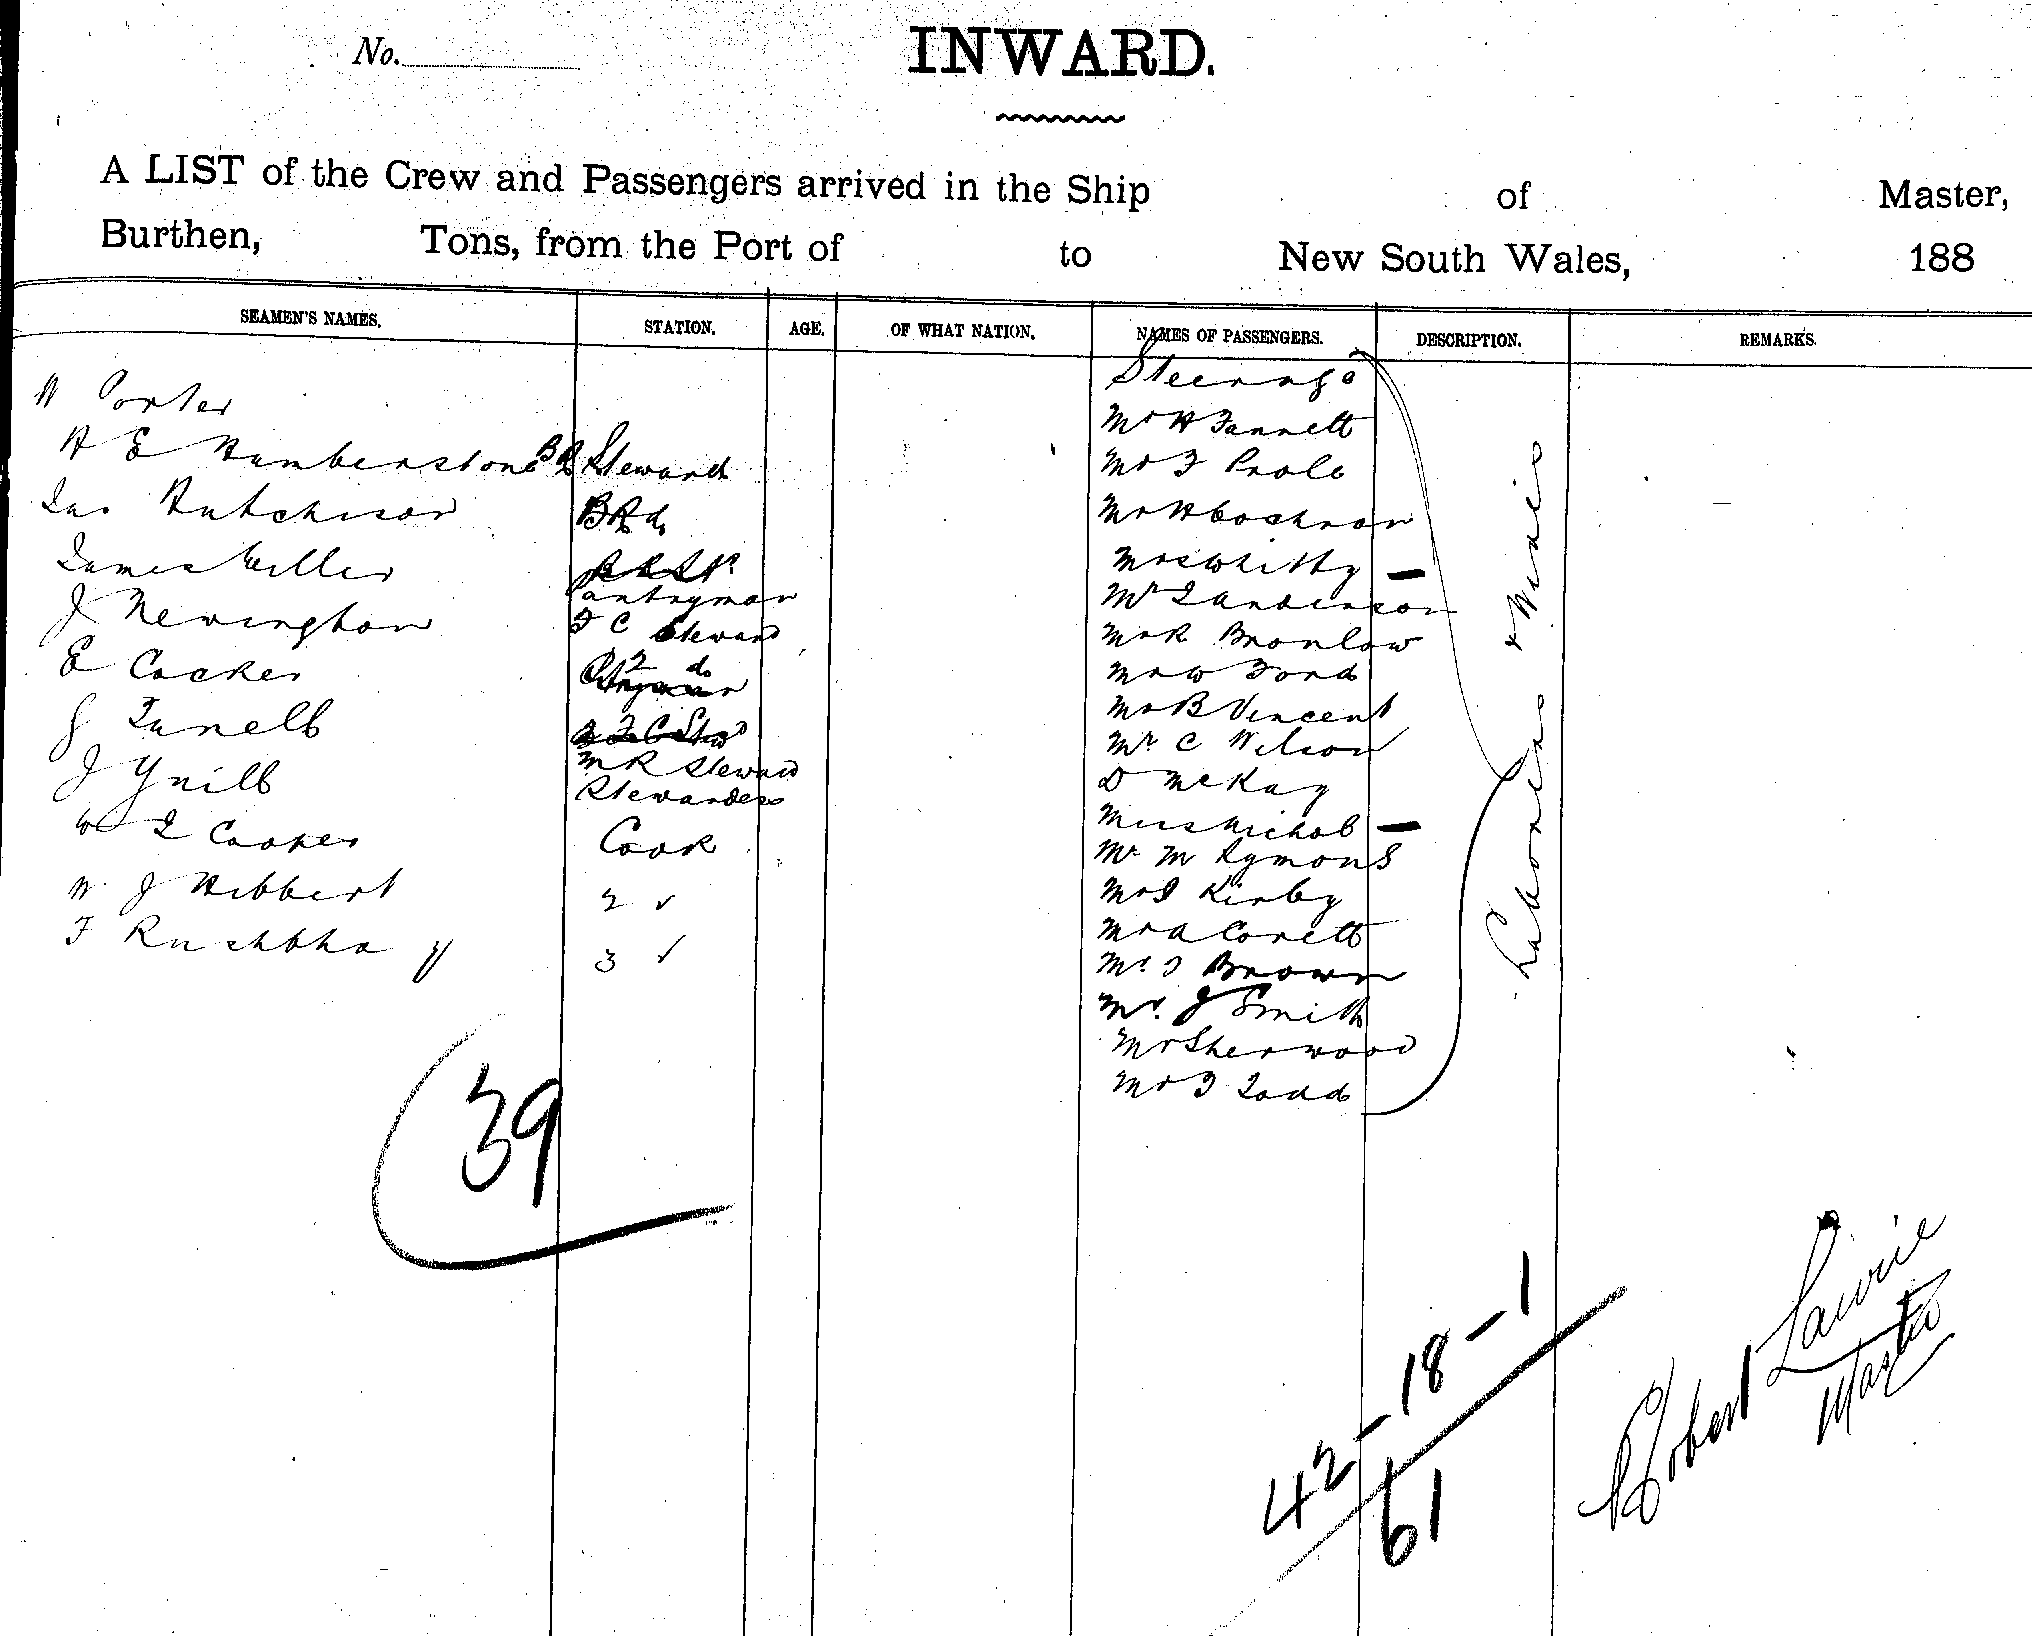 No.
INWARD.
A LIST of the Crew and Passengers arrived in the Ship of Master,
Burthen, Tons, from the Port of to New South Wales, 188
SEAMEN'S NAMES. STATION. AGE. OF WHAT NATION. NAMES OF PASSENGERS. DESCRIPTION. REMARKS.
Steerage
Porter
Mr H Fannett
H E Humberstone B R Steward
Mr F Prole
Jas Hutchison B R do
Mr H Cochran
James Weller
Mrs Whitty —
Pantryman
Mr J Anderson
J Newington F C Steward
Mr R Bronlow
E Cocker 2 do
Mr W Ford
Mr B Vincent
J Tunell
Mr C Wilson
M R Steward
D McKay
J Yuill Stewardess
Miss Nichol —
W J Cooper Cook
Mr M Symons
W J Hibbert 2 ✓
Mr J Kirby
Mr A Corett
F Rushbha y 3 ✓
Mr J Brown
Mr J Smith
Mr Sherwood
Mr J Todd
Labourers & Wives
39
42 - 18 - 1
61
Robert Lawrie
Master